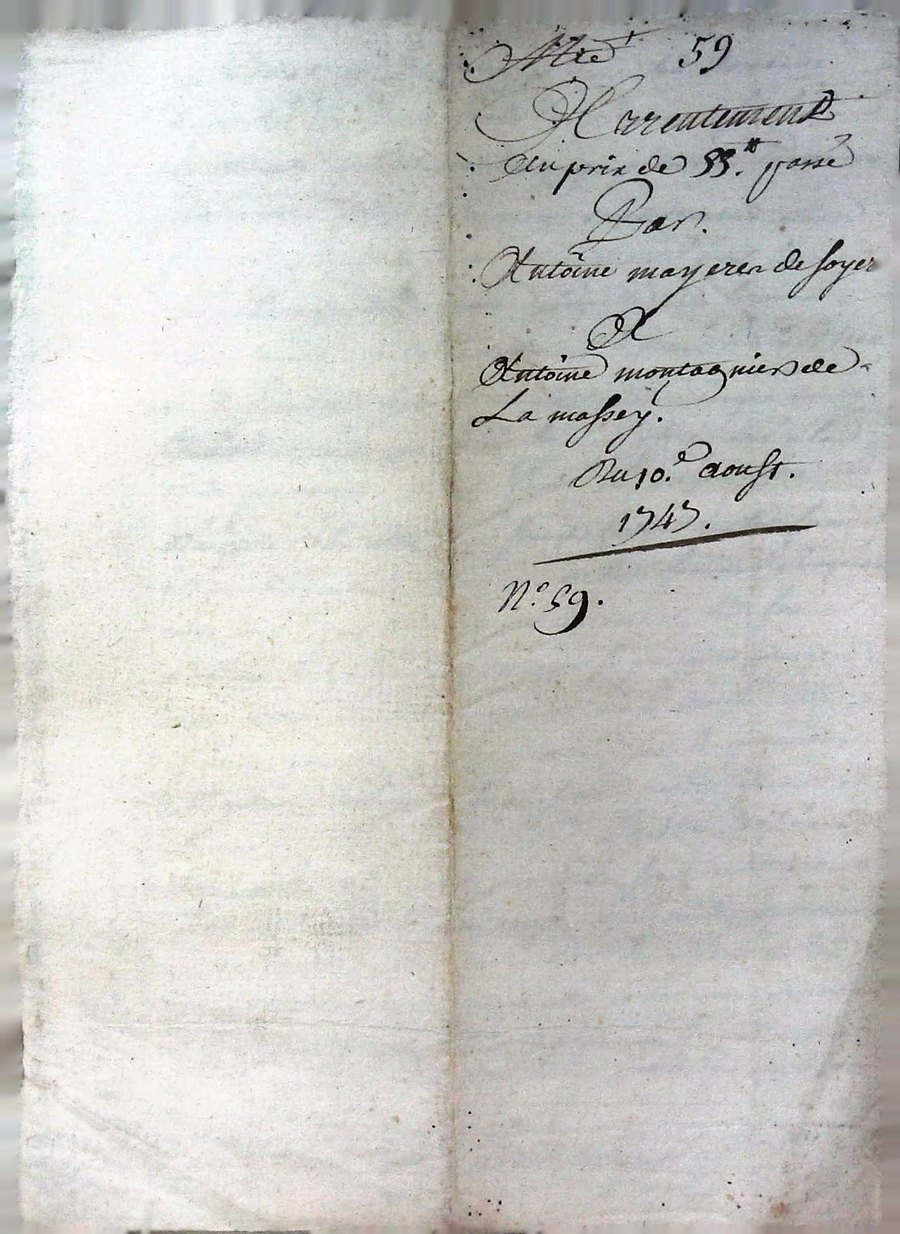 59
Arrentement
Au prix de 55.tt passé
Par.
Antoine mayere de soyer
A
Antoine montagnier de
La massey.
Du 10.e aoust.
1747.
N.o 59.